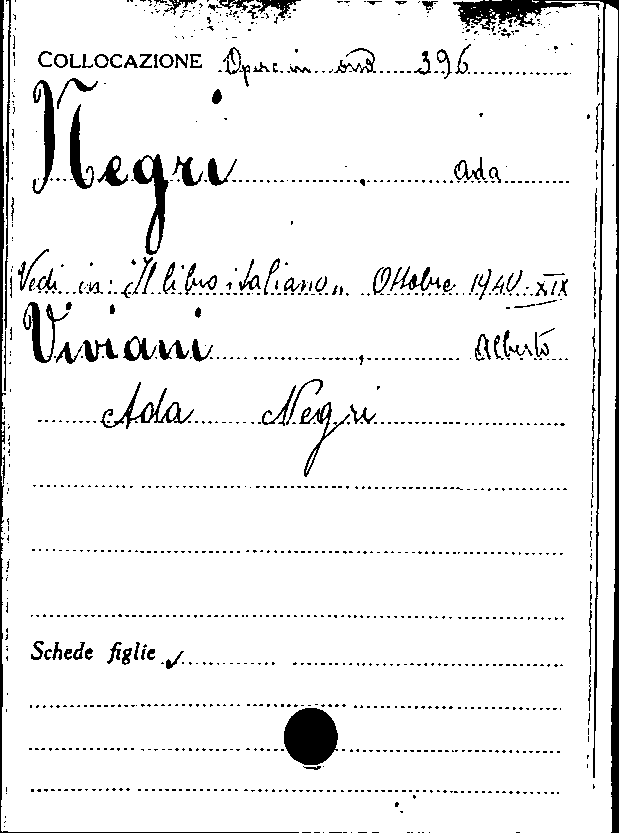 COLLOCAZIONE Oper. in 396
Negri, Ada
Vedi in: "Il libro italiano" Ottobre 1940-XIX
Viviani, Alberto
Ada Negri
Schede figlie ✓